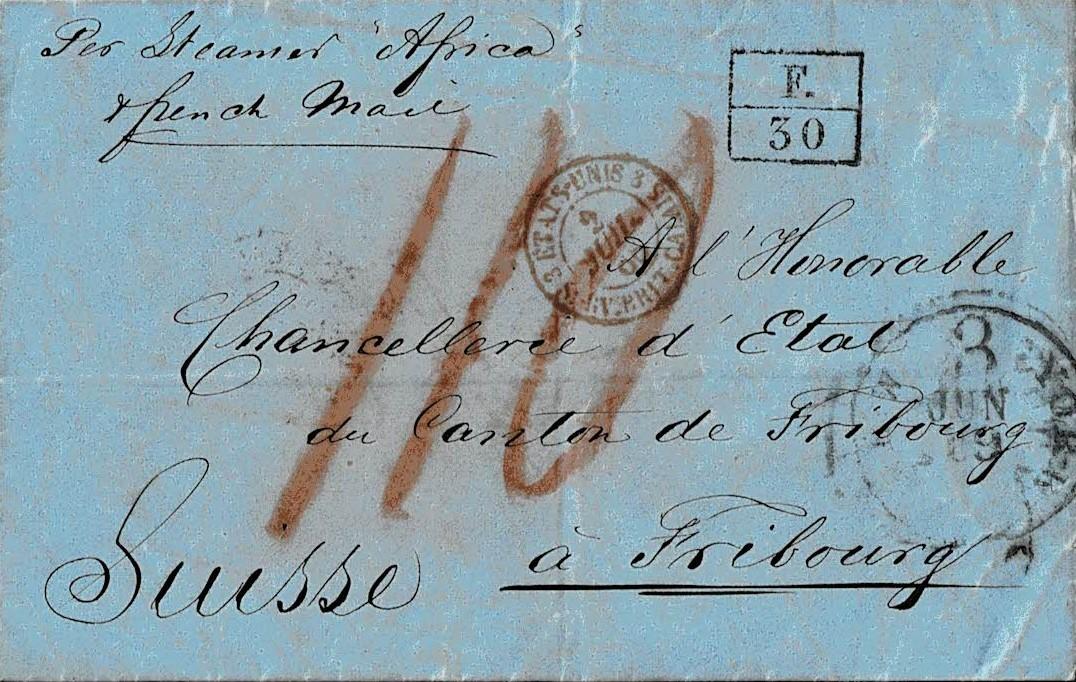 Per Steamer "Africa"
& french Mail
F.
30
3 ETATS-UNIS 3 SERV. BRIT. CALAIS
2
JUIL
A l'Honorable
Chancellerie d'Etat
du Canton de Fribourg
à Fribourg
Suisse
110
3
JUN
YORK